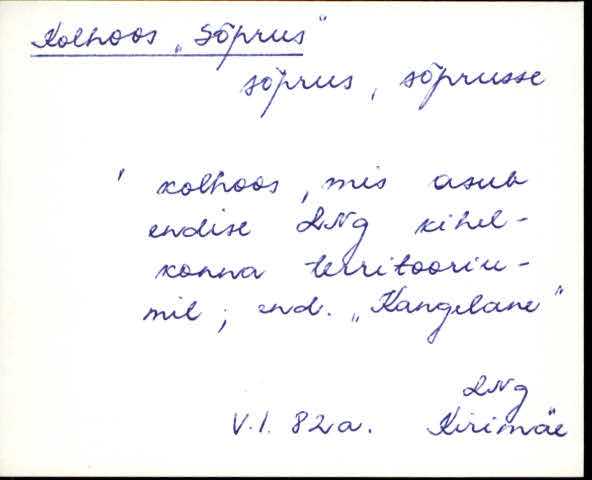 Kolhoos „Sõprus"
sõprus, sõprusse
' kolhoos, mis asub
endise LNg kihel-
konna territooriu-
mil; end. „Kangelane"
LNg
V.I. 82a. Kirimäe